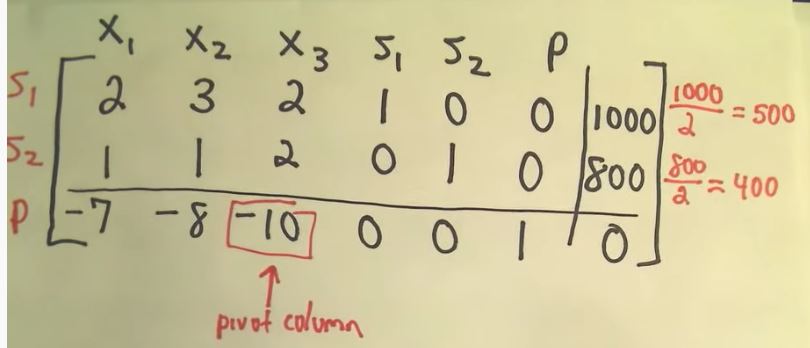 x₁ x₂ x₃ s₁ s₂ P
s₁ 2 3 2 1 0 0 1000 1000/2 = 500
s₂ 1 1 2 0 1 0 800 800/2 = 400
P -7 -8 -10 0 0 1 0
pivot column